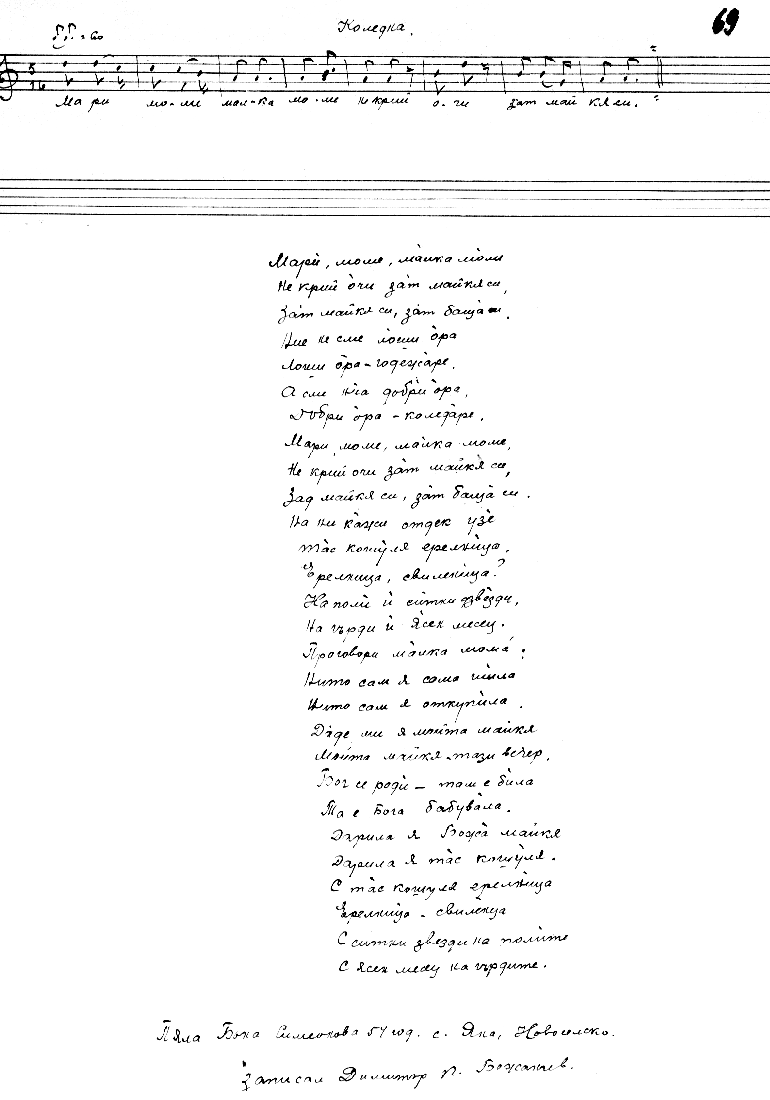 Коледна.
69
= 60
5
16
Ма ри мо-ми мал-ка мо-ме не крий о-чи зат май кя си.
Марѝ, моме, ма̀лка мо̀ми
Не крий о̀чи за̀т ма̀йкя си,
За̀т ма̀йкя си, за̀т баща̀ си.
Ние не сме ло̀ши о̀ра
Лоши о̀ра-годежа̀ре.
А сме нѝа добрѝ о̀ра,
Добри о̀ра - коледа̀ре.
Мари, моме, ма̀лка моме,
Не крий очи за̀т ма̀йкя си,
Зад ма̀йкя си, за̀т баща̀ си.
На ни ка̀жи отдек узѐ
та̀с кошу̀ля ерелнѝца,
Ерелница, свиленѝца?
На полѝ ѝ сѝтни дзвѐзди,
На гърди ѝ я̀сен месец.
Проговори ма̀лка мома̀:
Нѝто сам я сама шѝла
Нѝто сам я откупѝла.
Да̀де ми я мо̀йта ма̀йкя
Мо̀йта ма̀йкя тази вечер.
Бог се родѝ - там е бѝла
Та е Бога бабува̀ла.
Дарила я Бо̀жа ма̀йкя
Дарила я та̀с кошу̀ля.
С та̀с кошуля ерелнѝца
Ерелнѝца - свиленѝца
С ситни звезди на полите
С ясен месец на гърдите.
Пяла Бона Симеонова 54 год. с. Яна, Новоселско.
Записал Димитър п. Божанов.